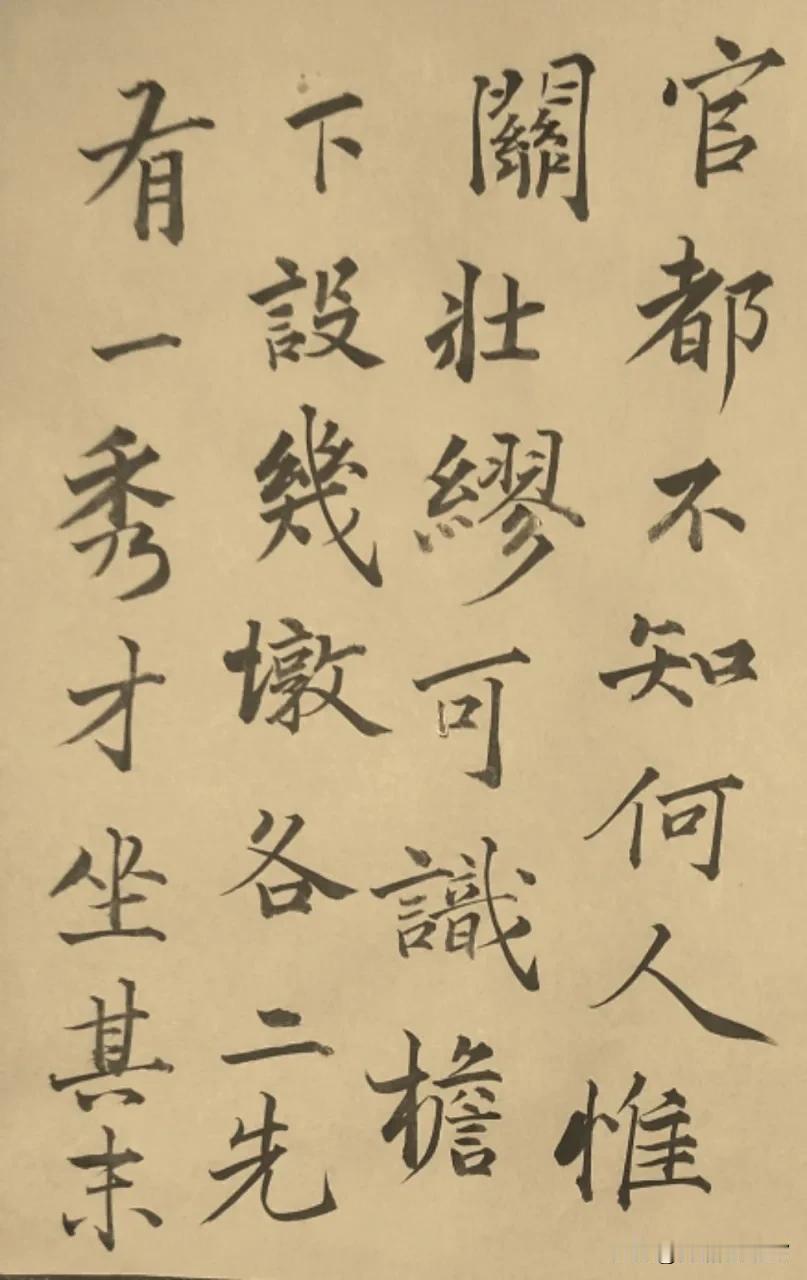 官都不知何人惟
關壯繆可識檐
下設幾墩各二先
有一秀才坐其末